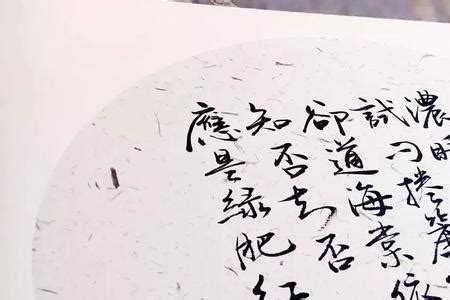 濃睡
試问捲簾
卻道海棠依
知否知否
應是綠肥紅